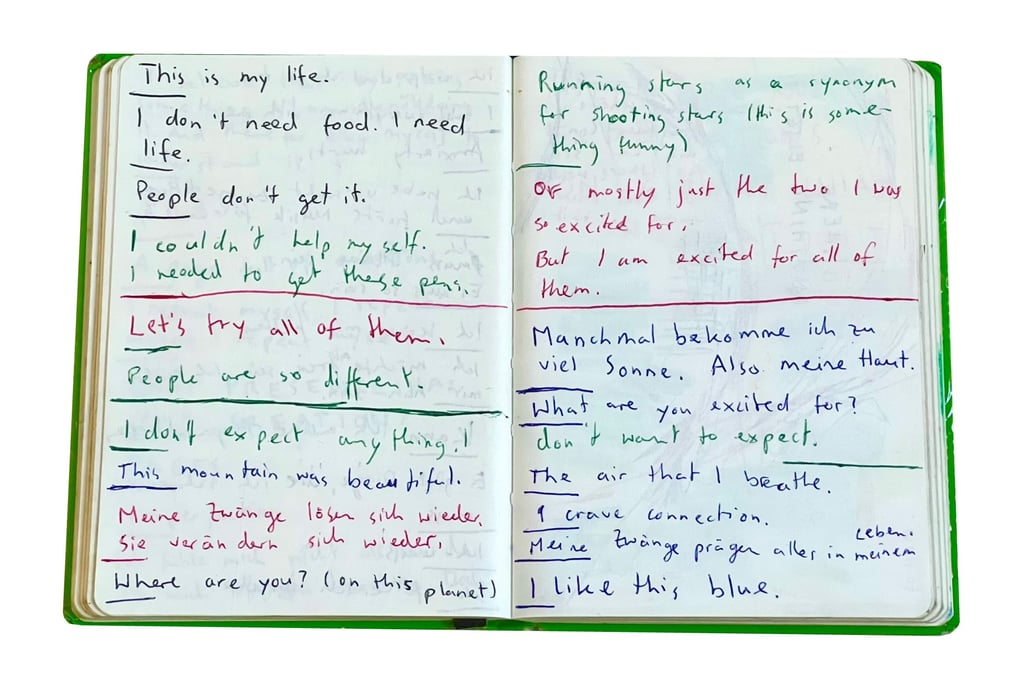 This is my life.
I don't need food. I need
life.
People don't get it.
I couldn't help my self.
I needed to get these pens.
Let's try all of them.
People are so different.
I don't expect anything. I
This mountain was beautiful.
Meine Zwänge lösen sich wieder.
Sie verändern sich wieder.
Where are you? (on this planet)
Running stars as a synonym
for shooting stars (this is some-
thing funny)
Or mostly just the two I was
so excited for.
But I am excited for all of
them.
Manchmal bekomme ich zu
viel Sonne. Also meine Haut.
What are you excited for?
don't want to expect.
The air that I breathe.
I crave connection.
Meine Zwänge prägen alles in meinem
Leben.
I like this blue.